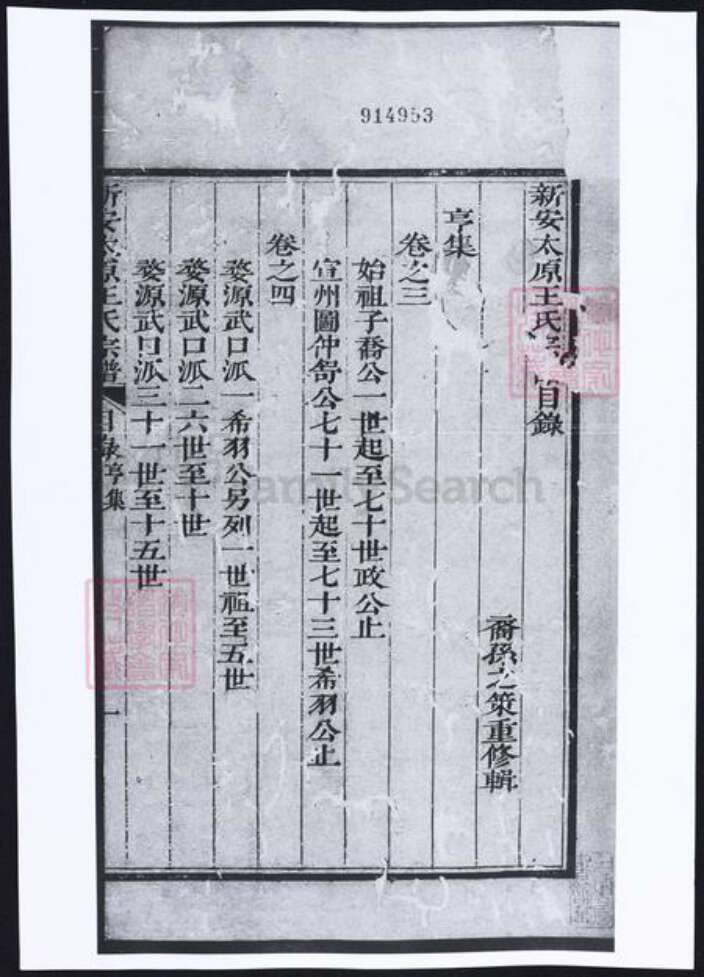 914953
新安太原王氏目錄
裔孫之策重修輯
亨集
卷之三
始祖子喬公一世起至七十世政公止
宣州圖仲舒公七十一世起至七十三世希羽公止
卷之四
婺源武口派一希羽公另列一世祖至五世
婺源武口派二六世至十世
婺源武口派三十一世至十五世
新安太原王氏宗譜
目錄亨集
一
FamilySearch